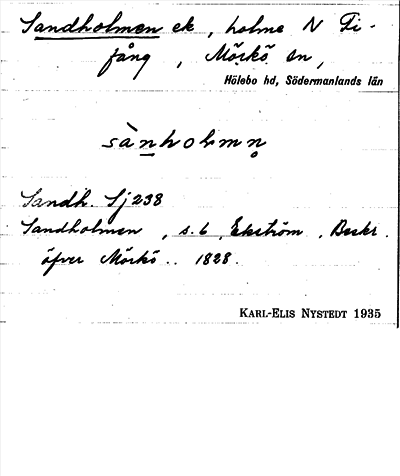 Sandholmen ek, holme N Fi-
fång, Mörkö sn,
Hölebo hd, Södermanlands län
sànholmn̥
Sandh. Sj 238
Sandholmen, s. 6, Ekström, Beskr.
öfver Mörkö.. 1828.
KARL-ELIS NYSTEDT 1935